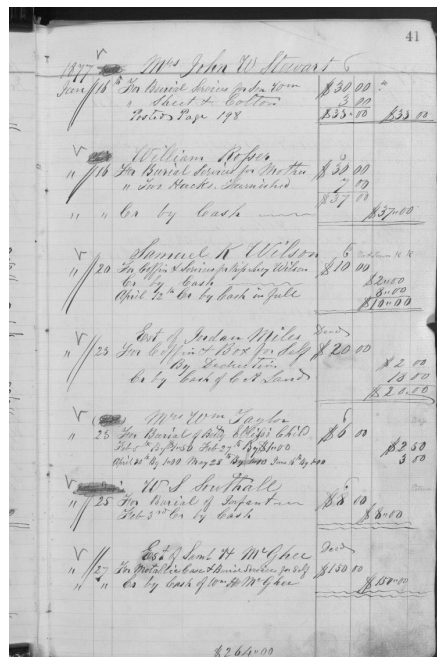 41
1877 Mrs John W Stewart
Jan 16th For Burial Services for Son Wm $30 00
" Sheet & Cotton 3 00
Posted Page 198 $33 00 $33 00
William Rosser
" 16 For Burial Services for Mother $30 00
" Two Hacks Furnished 7 00
$37 00
" " Cr by Cash $37 00
Samuel K Wilson
" 20 For Coffin & Services for Wilson $10 00
Cr by Cash $2 00
April 12th Cr by Cash in full 8 00
$10 00
Est of Jordan Miles Dead
" 23 For Coffin & Box for Self $20 00
By Deduction $2 00
Cr by Cash of 18 00
$20.00
Mrs Wm Taylor
" 23 For Burial of Child $6 00
Feb 27th By $1 00 $2 50
May 28th By 3 50
W S Southall
" 25 For Burial of Infant $8 00
Feb 3rd Cr by Cash $8 00
Est of Saml H McGhee Dead
" 27 For Metallic Case & Services for Self $150 00
" " Cr by Cash of Wm H McGhee $150 00
$264 00